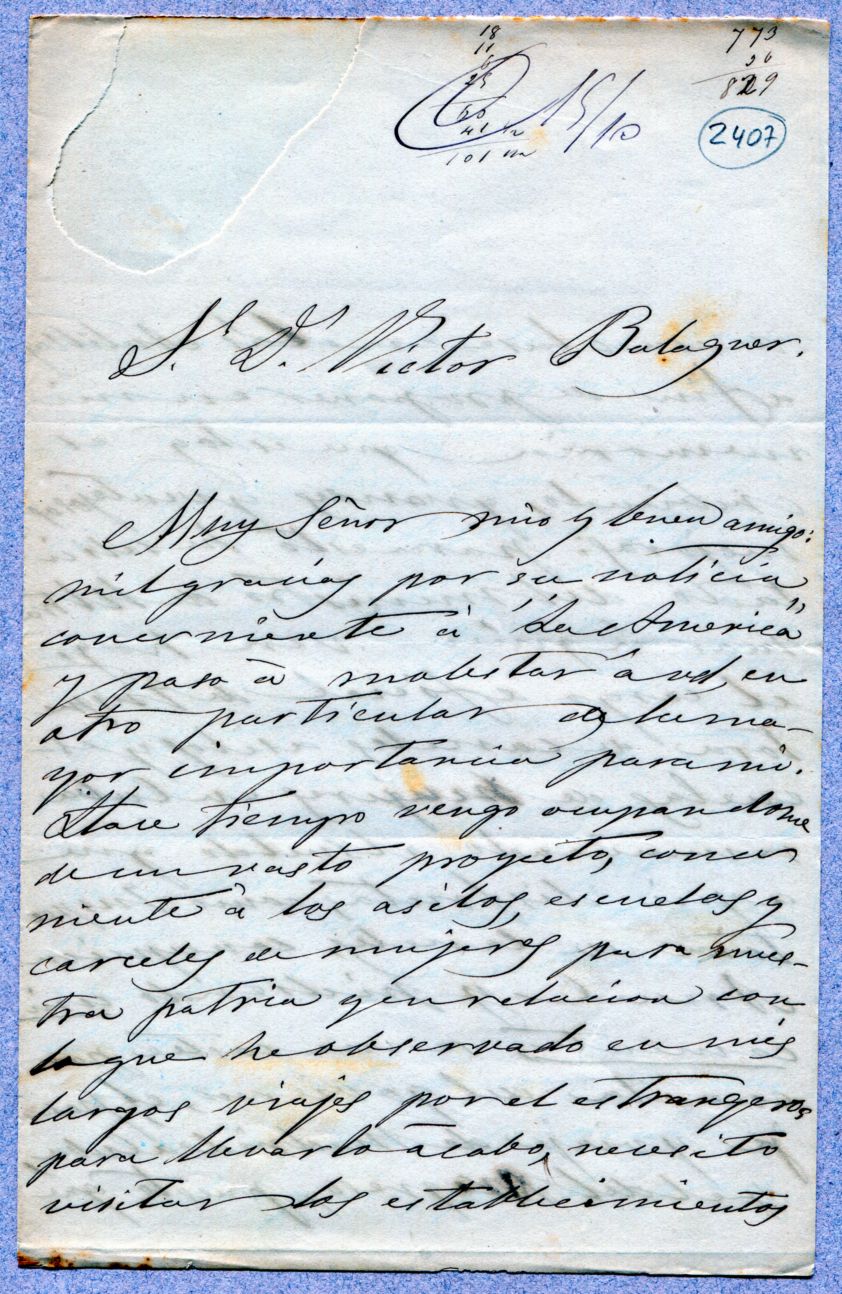 18
11
6
25
773
56
829
15/10
41 m
101 m
2407
Sr. Dn. Victor Balaguer.
Muy Señor mio y buen amigo:
mil gracias por su noticia
concerniente à "La America"
y paso à molestar à vd, en
otro particular de la ma-
yor importancia para mi.
Hace tiempo vengo ocupandome
de un vasto proyecto, concer
niente à los asilos, escuelas y
carceles de mujeres para nues-
tra patria y en relacion con
lo que he observado en mis
largos viajes por el estrangero,
para llevarlo à cabo, necesito
visitar los establecimientos